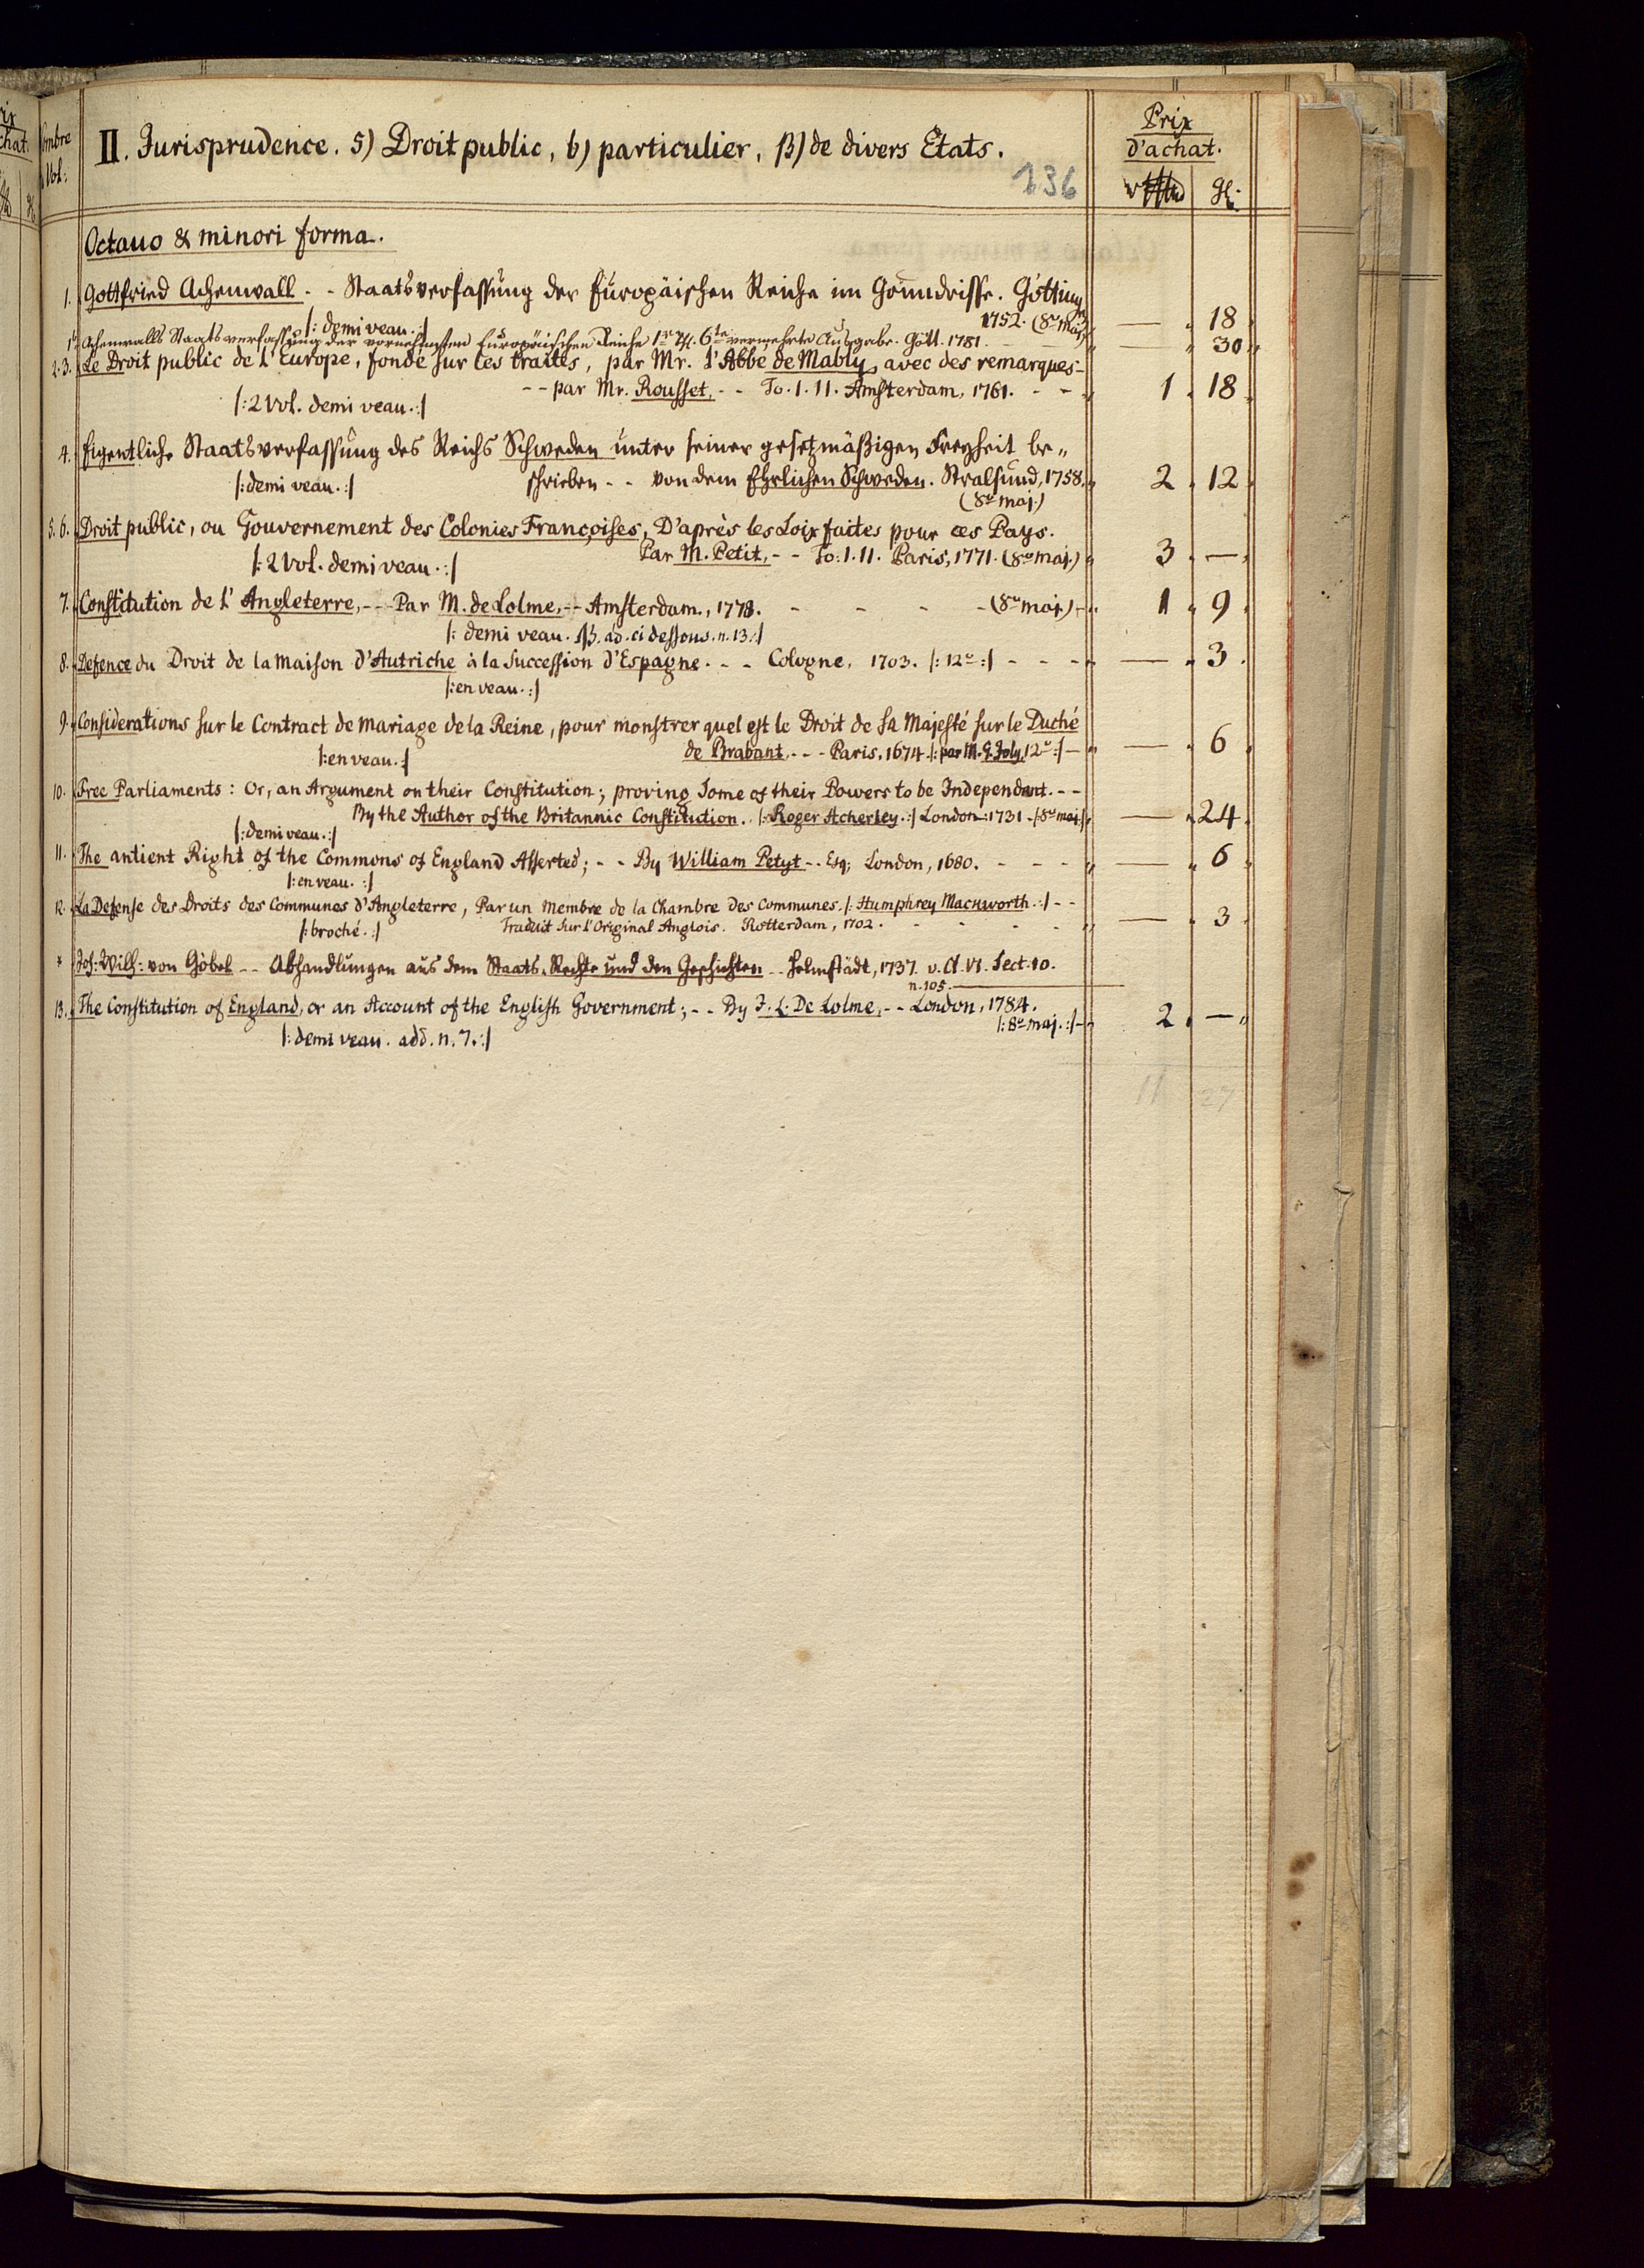 Nombre
Vol:
II. Jurisprudence. 5) Droit public, b) particulier, β) de divers Etats.
136
Prix
d'achat.
Octauo & minori forma.
1. Gottfried Achenwall - - Staatsverfassung der Europäischen Reiche im Grundrisse. Götting
1752. (8º maj.) — 18
/: demi veau. :/
1b Achenwalls Staatsverfassung der vornehmsten Europäischen Reiche 1r Th. 6te vermehrte Ausgabe. Gött. 1781. — 30
2.3. Le Droit public de l'Europe, fondé sur les traités, par Mr. l'Abbé de Mably, avec des remarques -
- - par Mr. Rousset, - - To. I. II. Amsterdam, 1761. - - 1 . 18
/: 2 Vol. demi veau. :/
4. Eigentliche Staatsverfassung des Reichs Schweden unter seiner gesetzmäßigen Freyheit be„
/: demi veau. :/ schrieben - - von dem Ehrlichen Schweden. Stralsund, 1758. 2 . 12
(8º maj.)
5. 6. Droit public, ou Gouvernement des Colonies Françoises, D'après les Loix faites pour ces Pays.
Par M. Petit, - - To: I. II. Paris, 1771. (8º maj.) 3 . —
/: 2 Vol. demi veau. :/
7. Constitution de l'Angleterre, - - Par M. de Lolme, - - Amsterdam, 1778. - - - - (8º maj.) - 1 . 9
/: demi veau. ad. ci dessous. n. 13. :/
8. Defence du Droit de la Maison d'Autriche à la Succession d'Espagne. - - Cologne, 1703. /: 12º :/ - - - — 3
/: en veau. :/
9. Considerations sur le Contract de Mariage de la Reine, pour monstrer quel est le Droit de Sa Majesté sur le Duché
de Brabant. - - - Paris, 1674. /: par M. G. Joly, 12º :/ — — 6
/: en veau. :/
10. Free Parliaments: Or, an Argument on their Constitution; proving Some of their Powers to be Independent. - -
By the Author of the Britannic Constitution. /: Roger Acherley. :/ London. 1731. /: 8º maj. :/ — 24
/: demi veau. :/
11. The antient Right of the Commons of England Asserted; - - By William Petyt - - Esq; London, 1680. - - - - — 6
/: en veau. :/
12. La Defense des Droits des Communes d'Angleterre, Par un Membre de la Chambre des Communes. /: Humphrey Mackworth. :/ - -
/: broché. :/ Traduit sur l'Original Anglois. Rotterdam, 1702. - - - - — 3
* Joh: Wilh: von Göbel - - Abhandlungen aus dem Staats-Rechte und den Geschichten - - Helmstädt, 1737. v. Cl. VI. Sect. 10.
n. 105.
13. The Constitution of England, or an Account of the English Government; - - By J. L. De Lolme, - - London, 1784.
/: 8º maj. :/ - 2 . —
/: demi veau. add. n. 7. :/
11 27